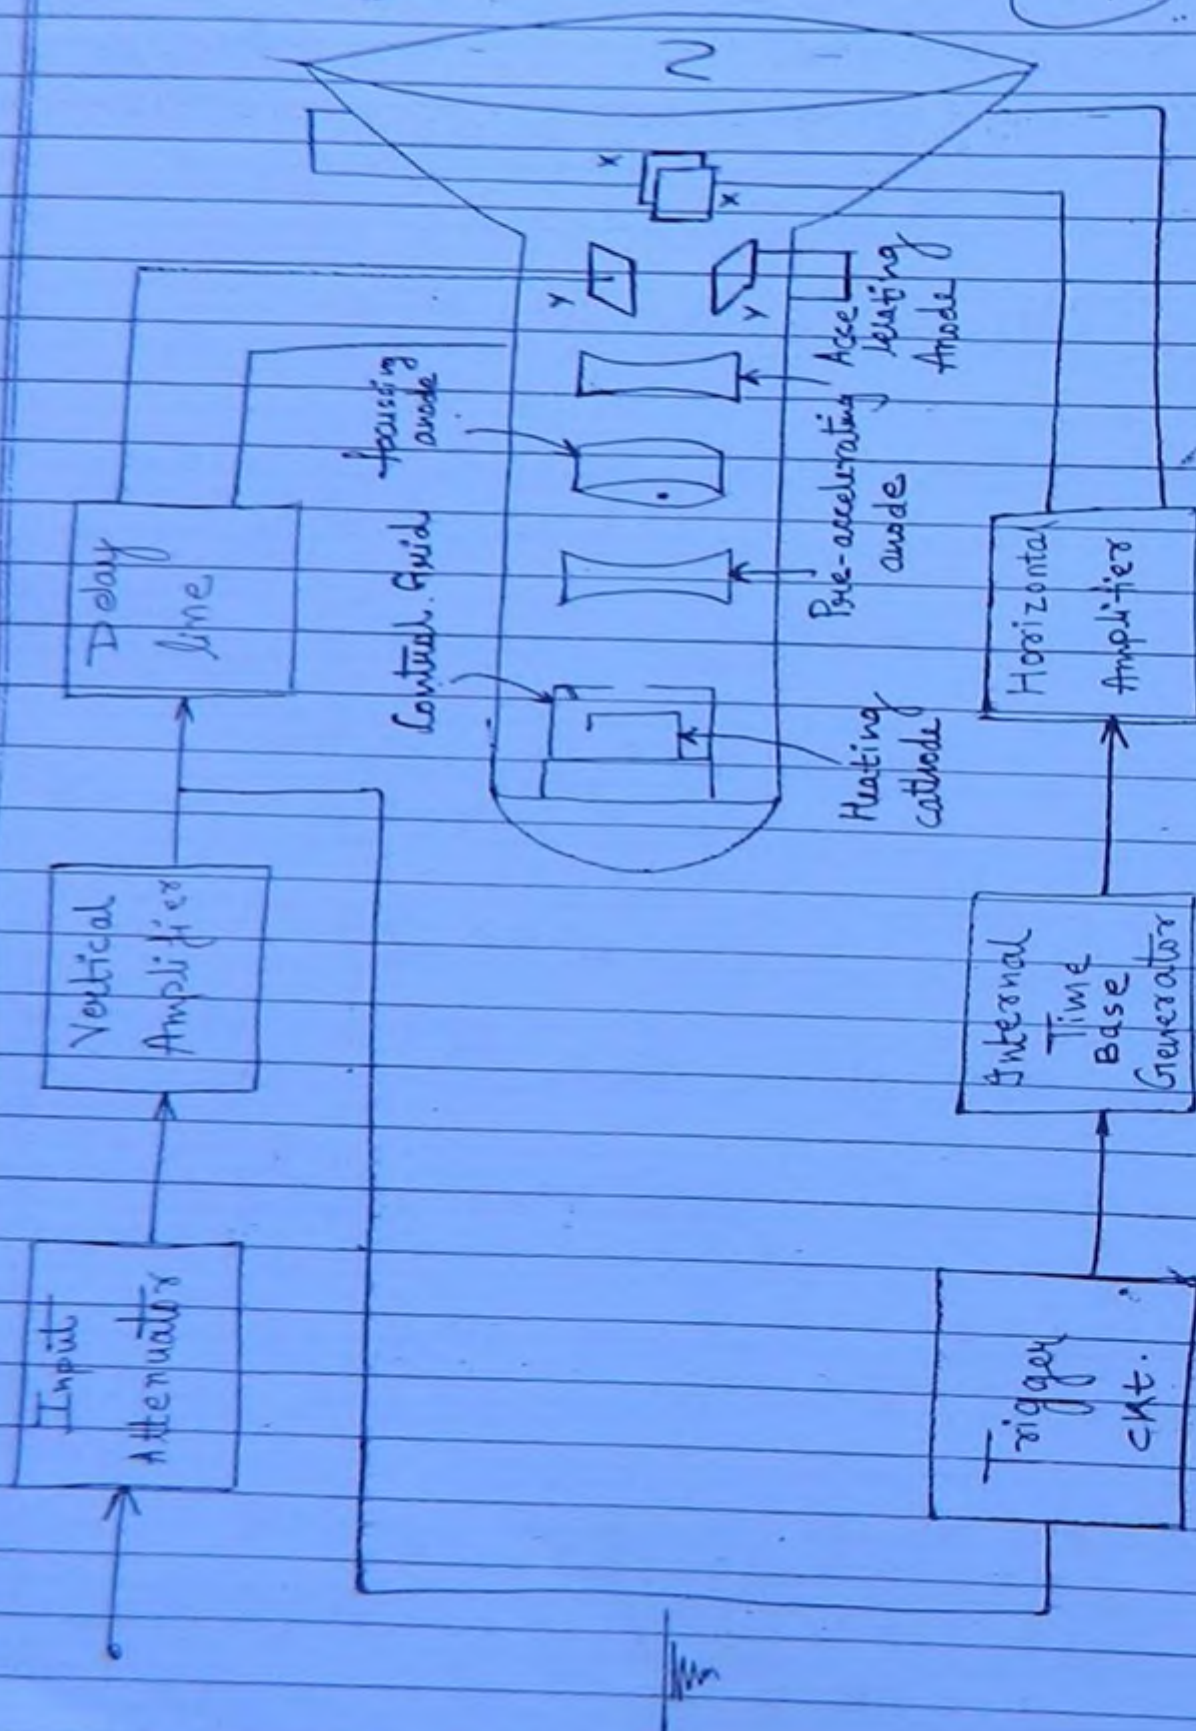 Input
Attenuator
Vertical
Amplifier
Delay
line
Control Grid
focussing
anode
Y
Y
X
X
Heating
cathode
Pre-accelerating
anode
Acce
lerating
Anode
Trigger
CKt.
Internal
Time
Base
Generator
Horizontal
Amplifier